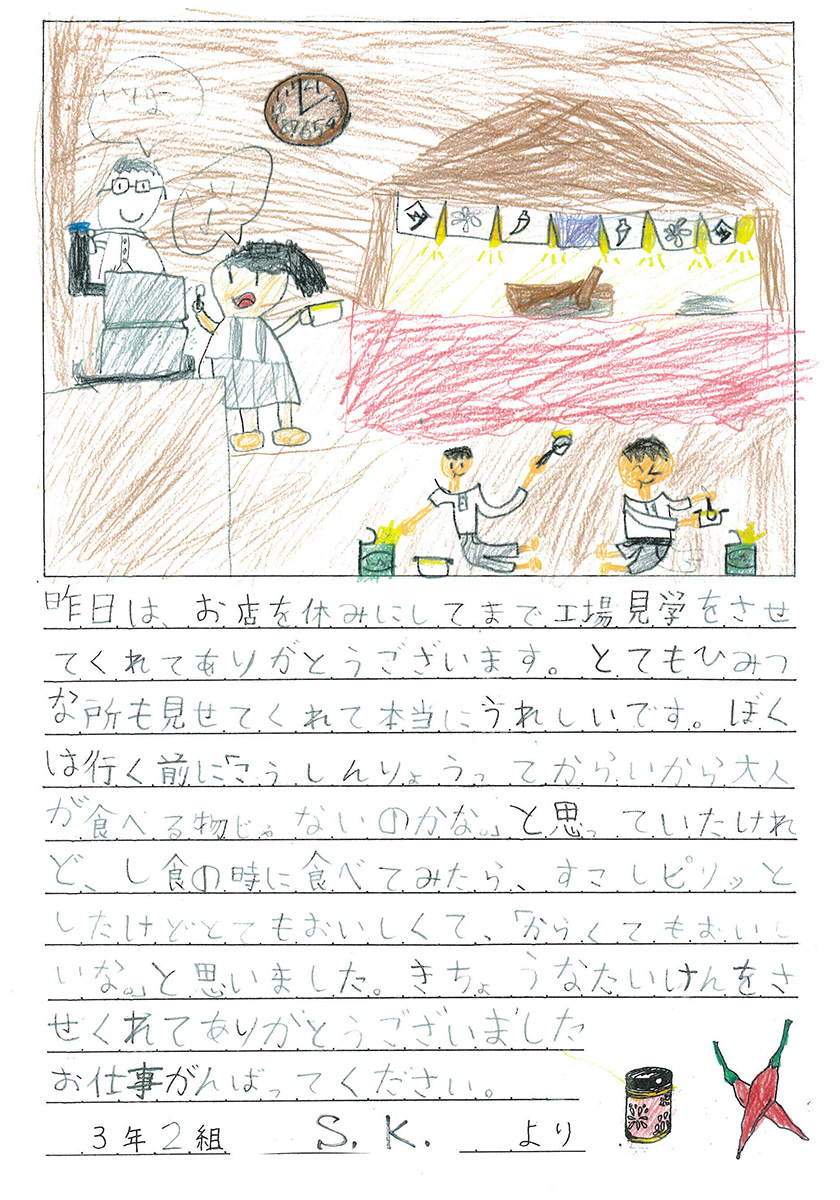 昨日は、お店を休みにしてまで工場見学をさせ
てくれてありがとうございます。とてもひみつ
な所も見せてくれて本当にうれしいです。ぼく
は行く前に「こうしんりょうってからいから大人
が食べる物じゃないのかな。」と思っていたけれ
ど、し食の時に食べてみたら、すこしピリッと
したけどとてもおいしくて、「からくてもおいし
いな。」と思いました。きちょうなたいけんをさ
せくれてありがとうございました
お仕事がんばってください。
3年2組 S.K. より